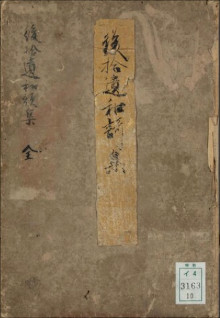 後拾遺和謌集
後拾遺和歌集
全
イ4
3163
10